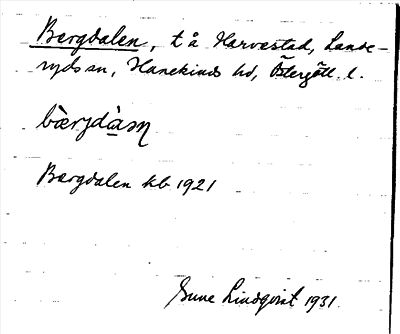 Bergdalen, t å Harvestad, Lande-
ryds sn, Hanekinds hd, Östergötl. l.
bærjdàsn
Bergdalen kb 1921
Sune Lindqvist 1931.